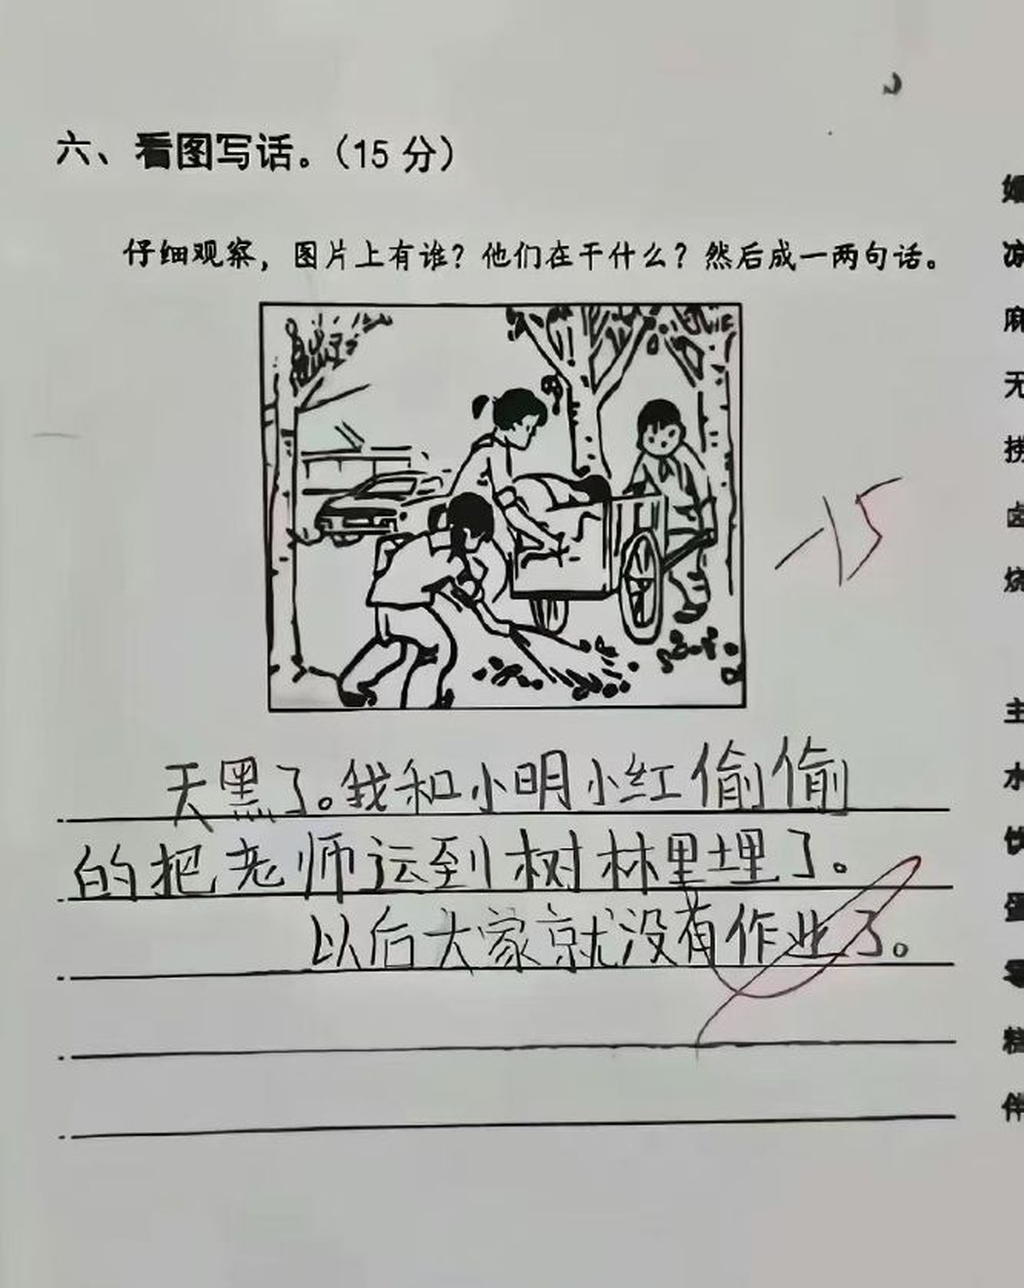 六、看图写话。（15 分）
仔细观察，图片上有谁？他们在干什么？然后成一两句话。
-15
天黑了。我和小明小红偷偷
的把老师运到树林里埋了。
以后大家就没有作业了。
麻
无
捞
卤
烧
主
水
饮
蛋
糕
伴